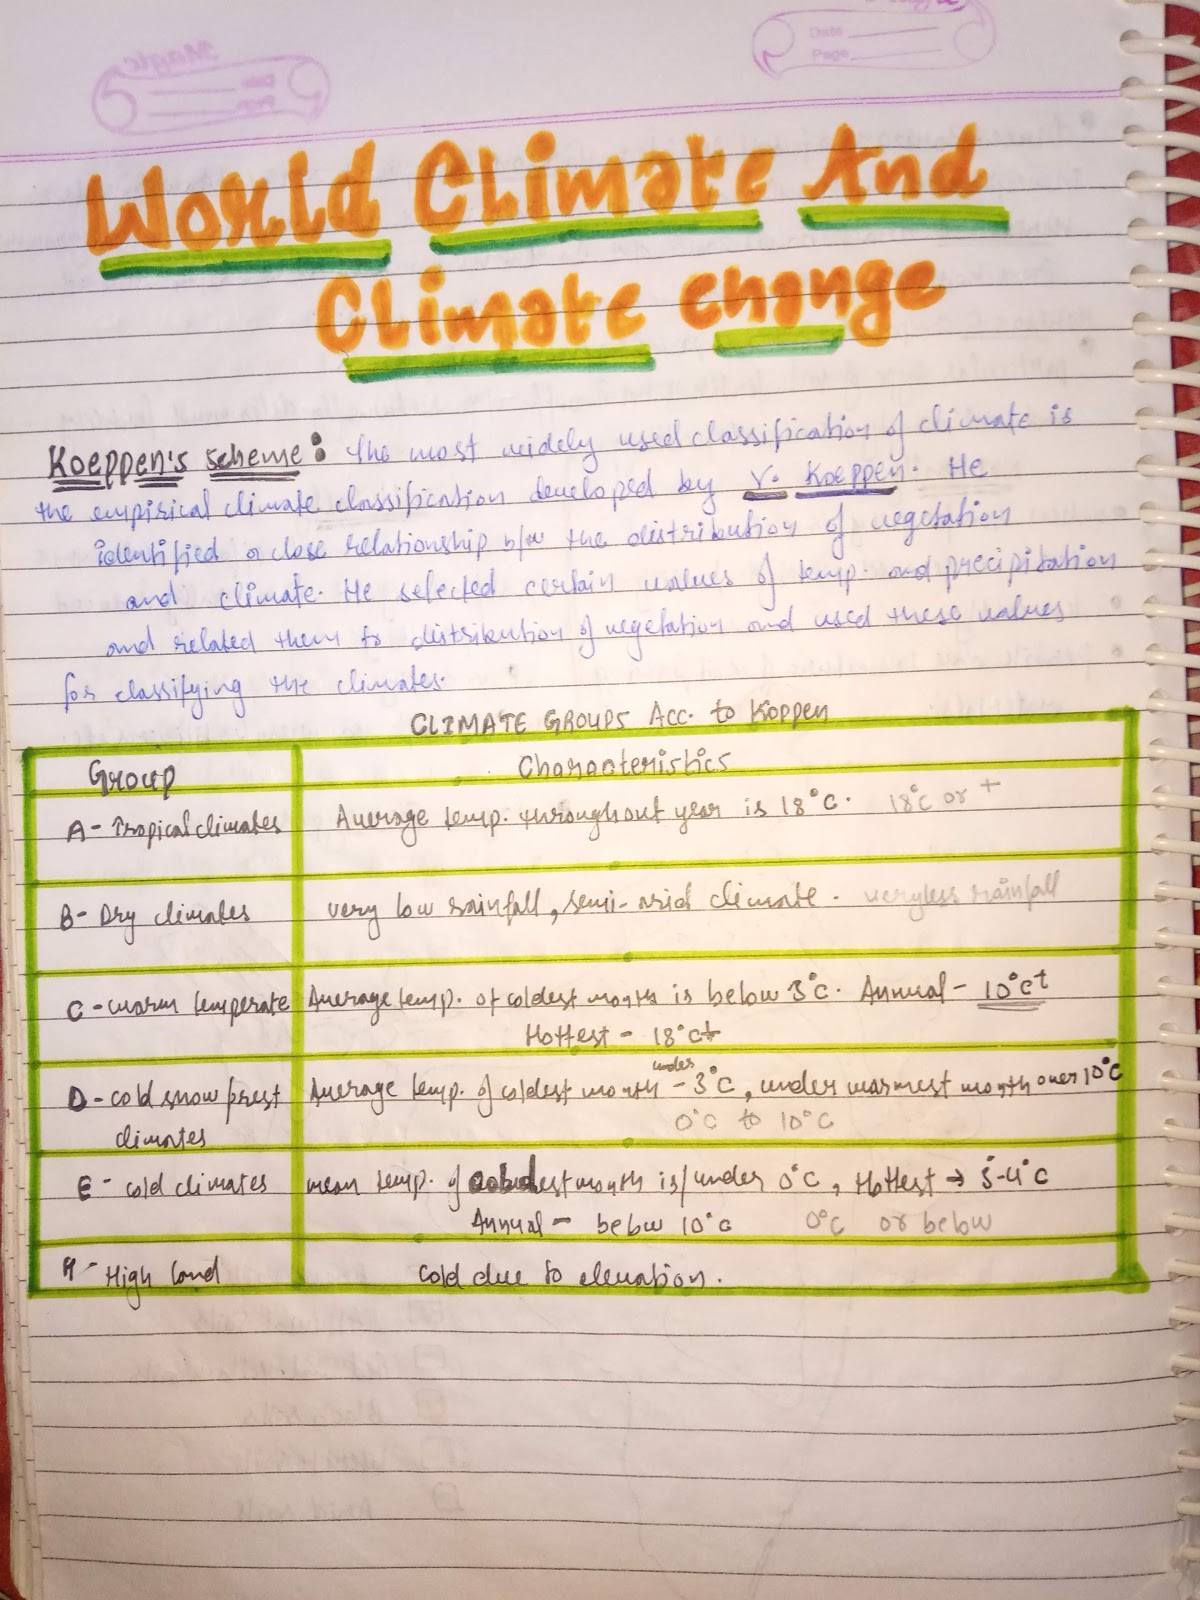 Magic
Date
Page
Date
Page
World Climate And
Climate change
Koeppen's scheme: The most widely used classification of climate is
the empirical climate classification developed by V. Koeppen. He
identified a close relationship b/w the distribution of vegetation
and climate. He selected certain values of temp. and precipitation
and related them to distribution of vegetation and used these values
for classifying the climates.
CLIMATE GROUPS Acc. to Koppen
Group Characteristics
A - Tropical climates Average temp. throughout year is 18°C. 18°C or +
B - Dry climates very low rainfall, semi-arid climate. very less rainfall
C - warm temperate Average temp. of coldest months is below 3°C. Annual - 10°C+
Hottest - 18°C+
under
D - cold snow forest Average temp. of coldest month - 3°C, under warmest month over 10°C
climates 0°C to 10°C
E - cold climates mean temp. of coldest month is/under 0°C, Hottest → 3-4°C
Annual - below 10°C 0°C or below
H - High land cold due to elevation.